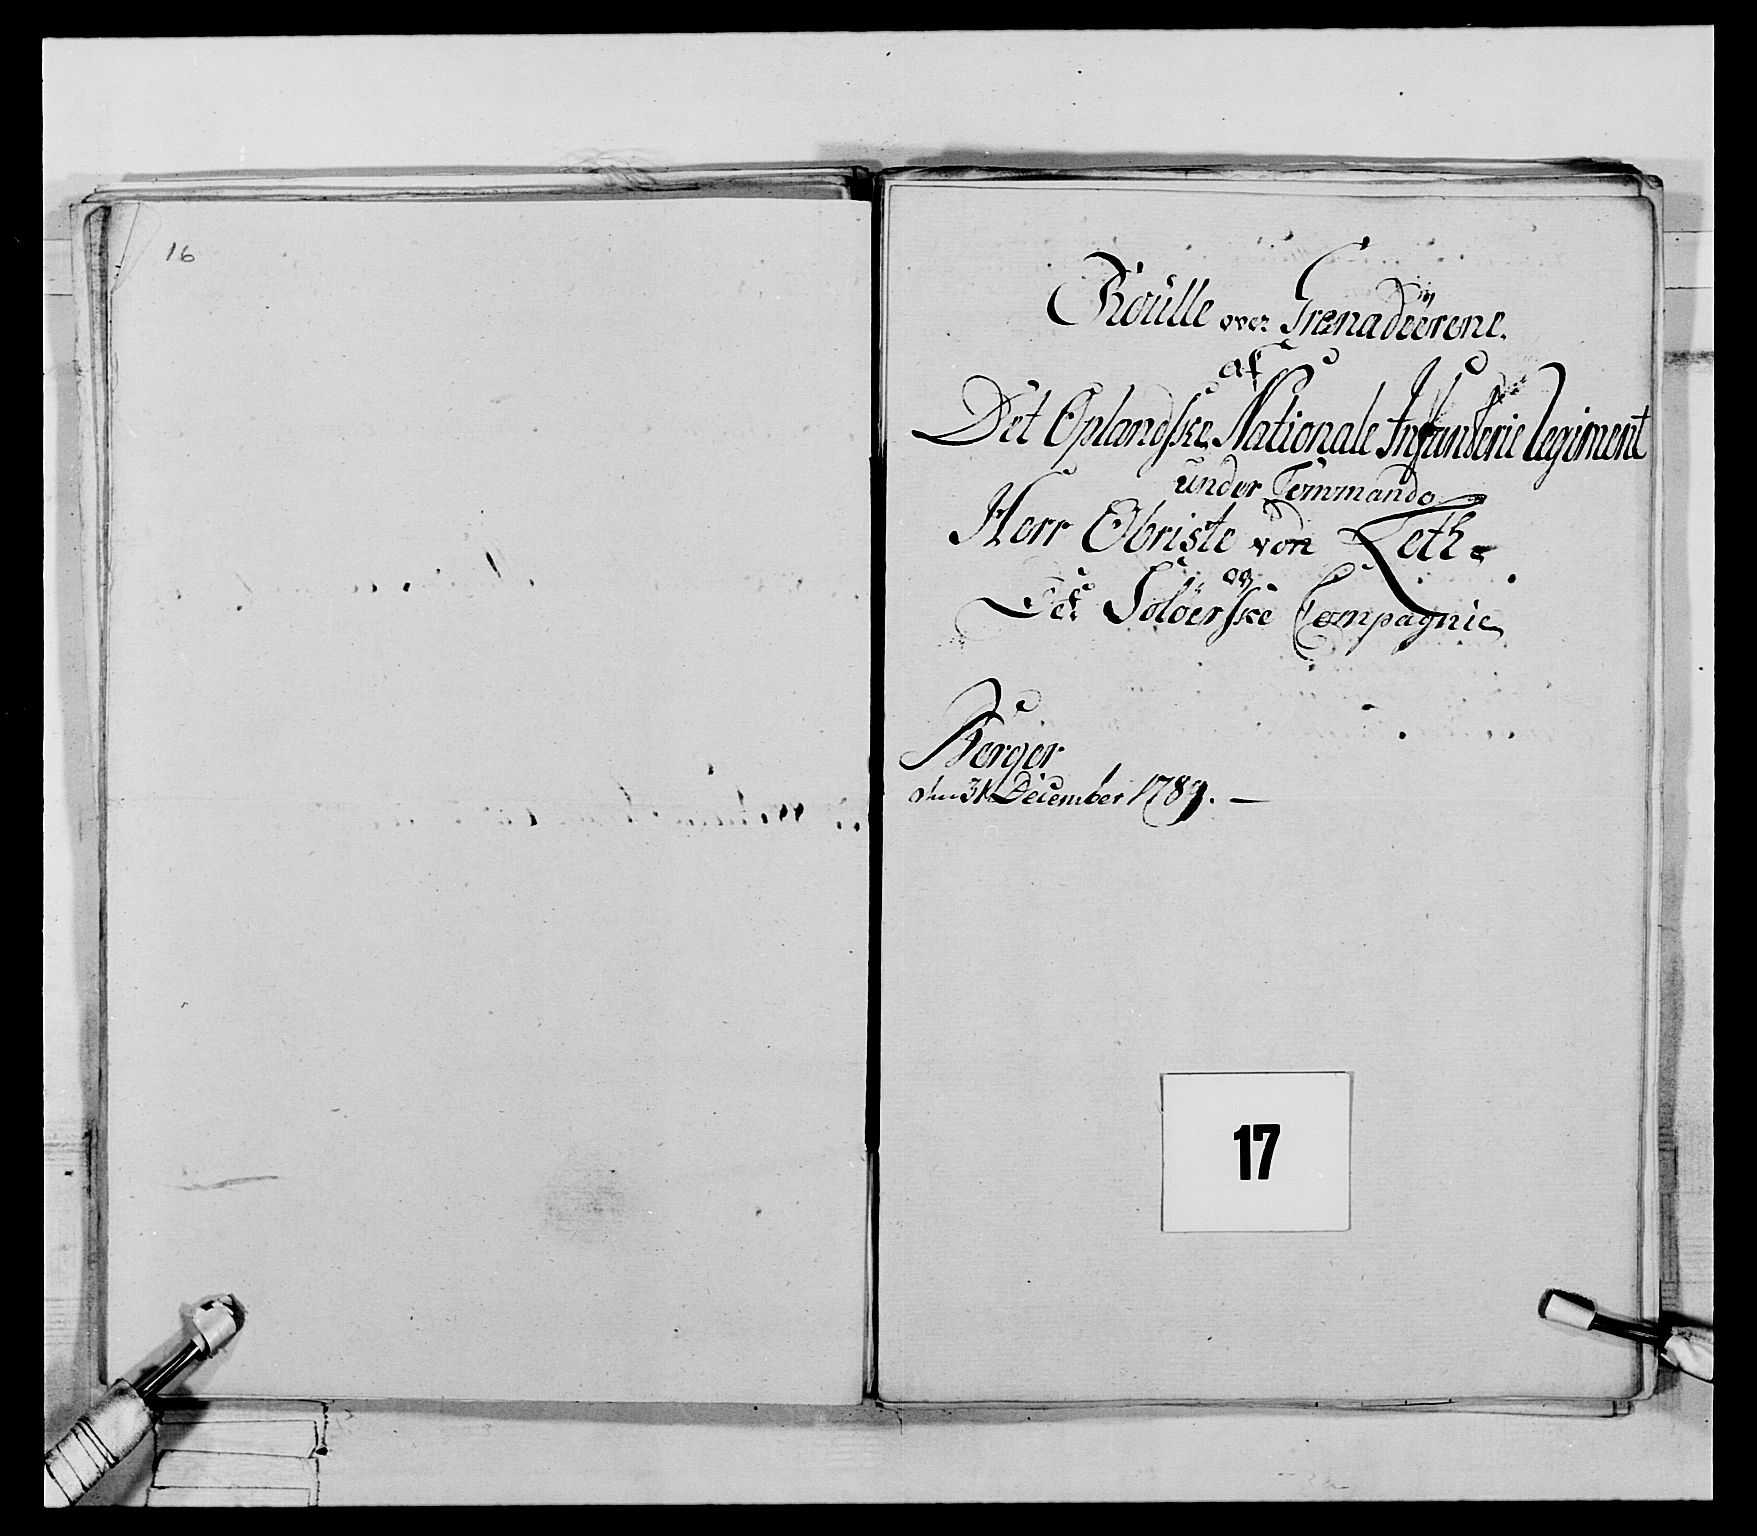 16
Roülle over Grenadeerene.
af
Det Oplandske Nationale Infanterie Regiment
under Commando
Herr Obriste von
Det Solöerske Compagnie
Berger
den 31te December 1789. —
17